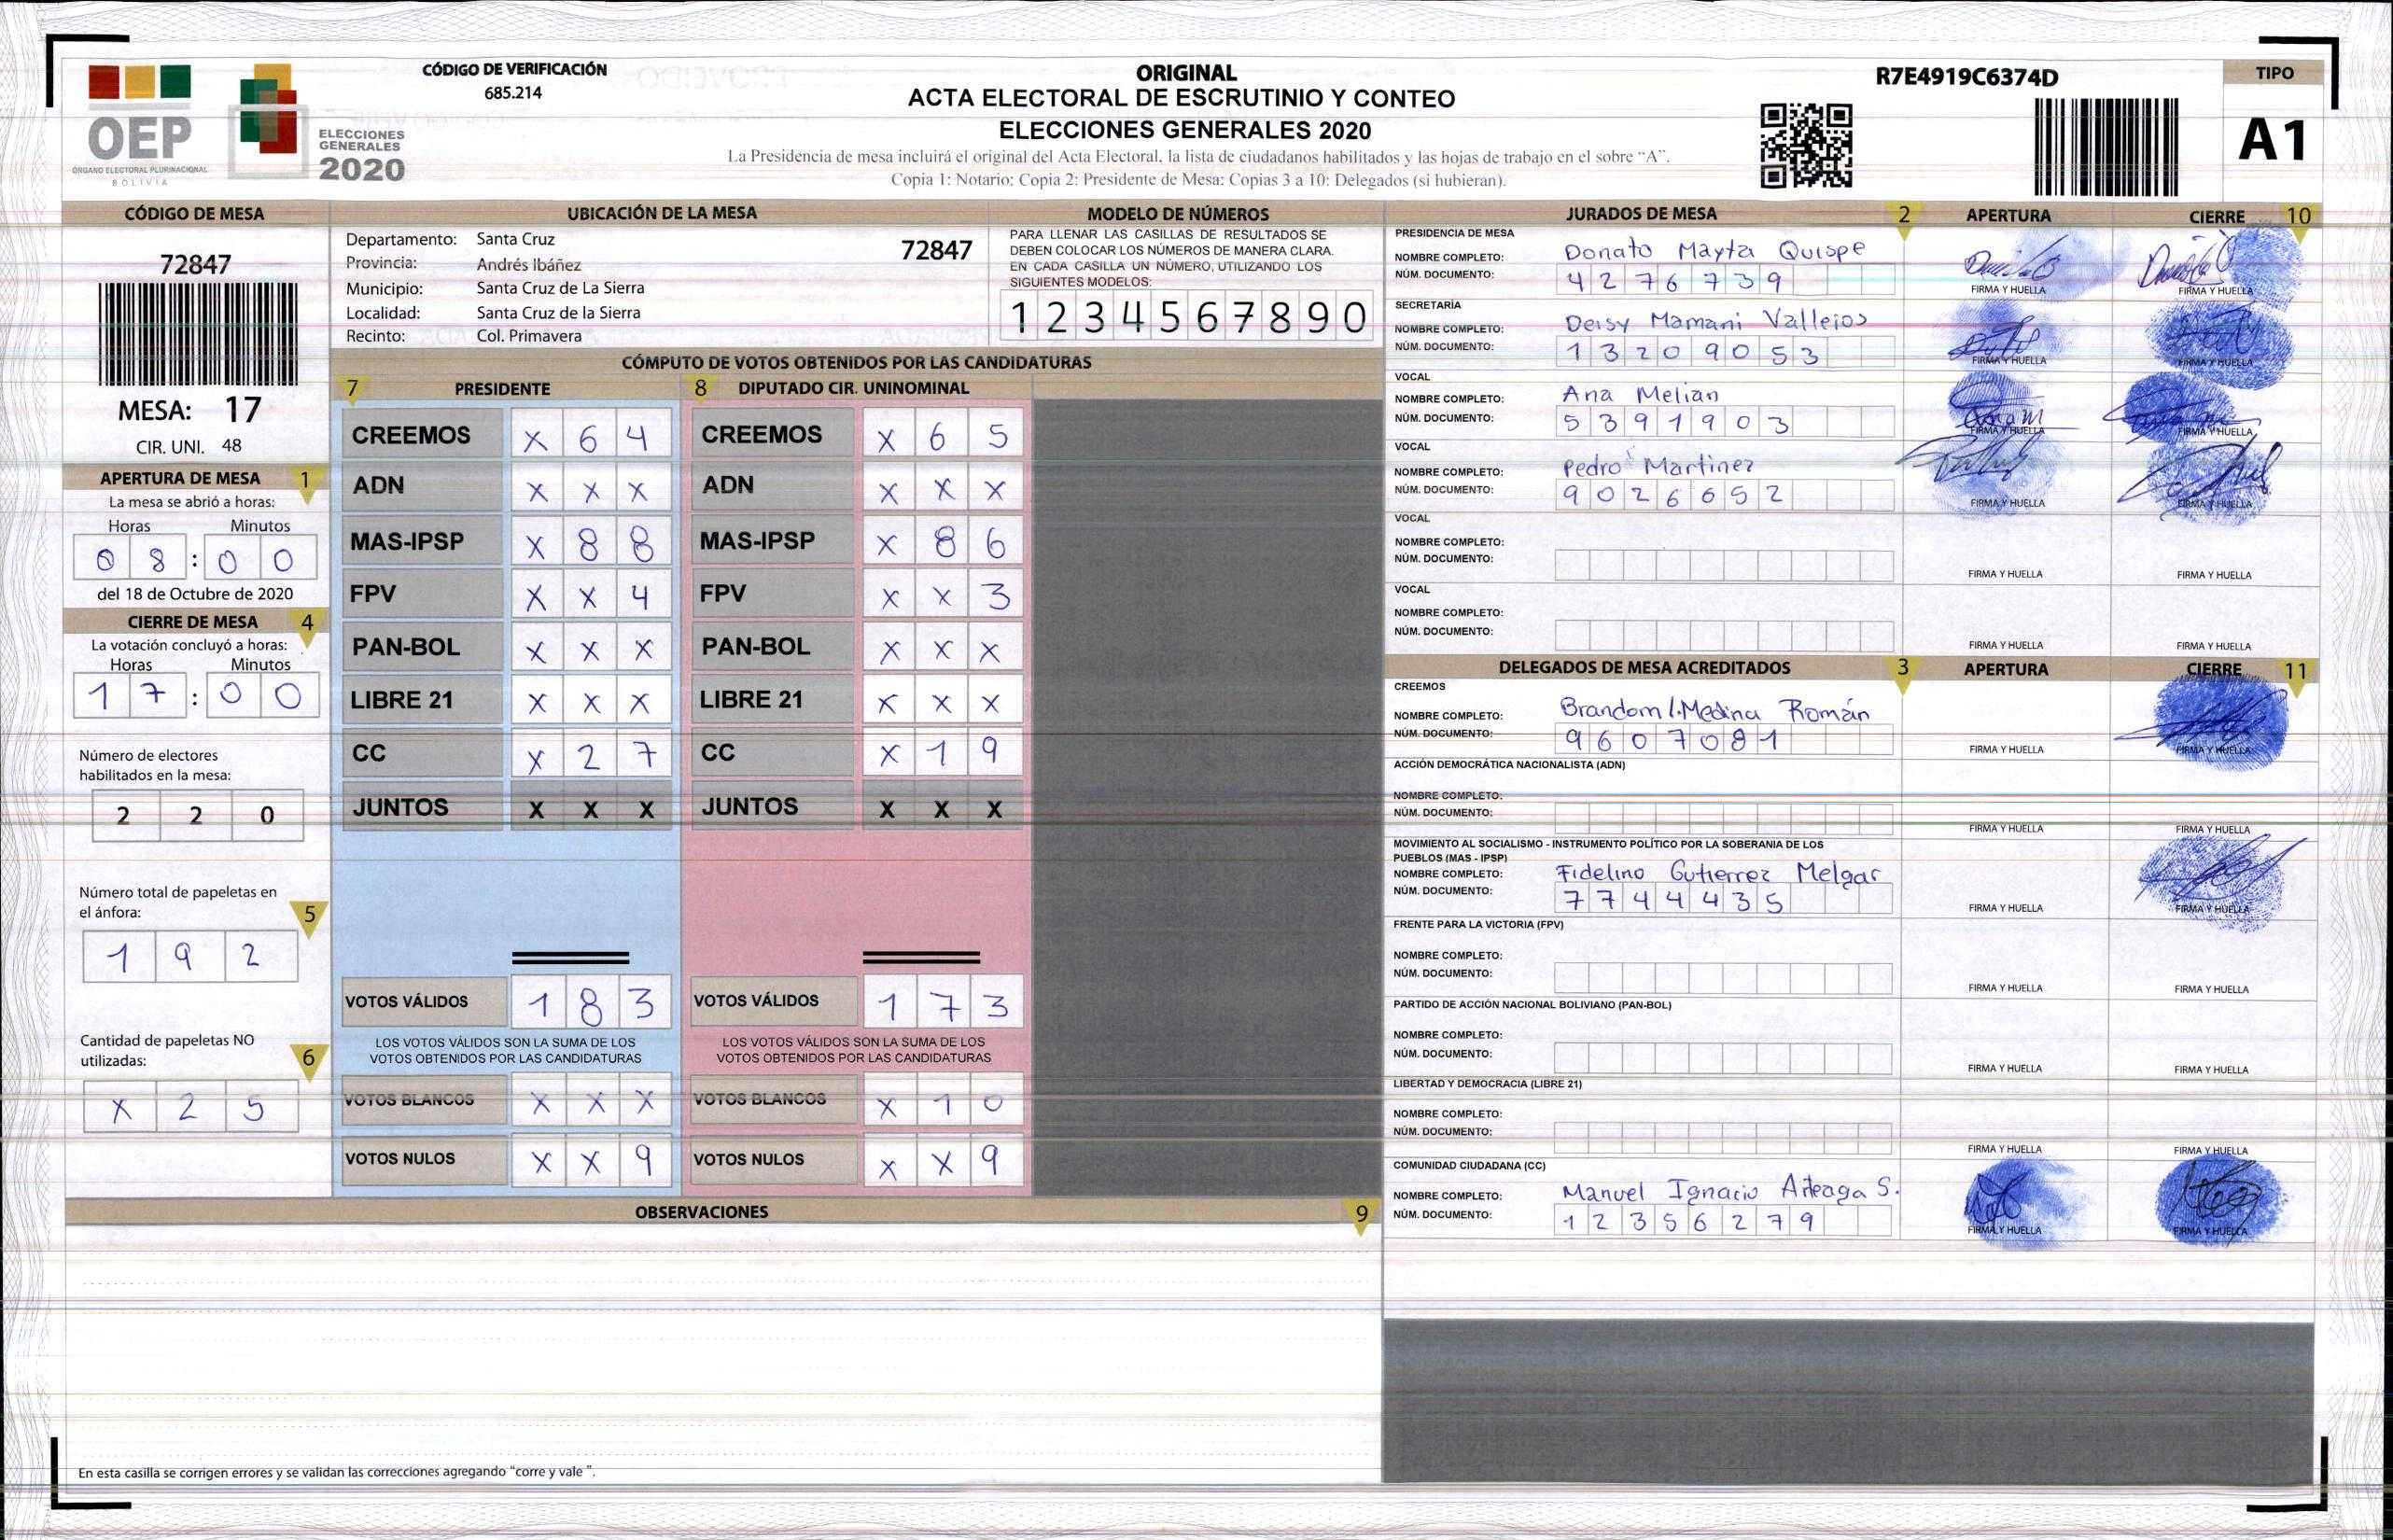 CÓDIGO DE VERIFICACIÓN
685.214
OEP
ÓRGANO ELECTORAL PLURINACIONAL
BOLIVIA
ELECCIONES
GENERALES
2020
ORIGINAL
ACTA ELECTORAL DE ESCRUTINIO Y CONTEO
ELECCIONES GENERALES 2020
La Presidencia de mesa incluirá el original del Acta Electoral, la lista de ciudadanos habilitados y las hojas de trabajo en el sobre "A".
Copia 1: Notario; Copia 2: Presidente de Mesa; Copias 3 a 10: Delegados (si hubieran).
R7E4919C6374D
TIPO
A1
CÓDIGO DE MESA
72847
MESA: 17
CIR. UNI. 48
APERTURA DE MESA 1
La mesa se abrió a horas:
Horas Minutos
0 8 : 0 0
del 18 de Octubre de 2020
CIERRE DE MESA 4
La votación concluyó a horas:
Horas Minutos
1 7 : 0 0
Número de electores
habilitados en la mesa:
2 2 0
Número total de papeletas en
el ánfora: 5
1 9 2
Cantidad de papeletas NO
utilizadas: 6
X 2 5
UBICACIÓN DE LA MESA
Departamento: Santa Cruz
72847
Provincia: Andrés Ibáñez
Municipio: Santa Cruz de La Sierra
Localidad: Santa Cruz de la Sierra
Recinto: Col. Primavera
MODELO DE NÚMEROS
PARA LLENAR LAS CASILLAS DE RESULTADOS SE
DEBEN COLOCAR LOS NÚMEROS DE MANERA CLARA.
EN CADA CASILLA UN NÚMERO, UTILIZANDO LOS
SIGUIENTES MODELOS:
1 2 3 4 5 6 7 8 9 0
CÓMPUTO DE VOTOS OBTENIDOS POR LAS CANDIDATURAS
7 PRESIDENTE 8 DIPUTADO CIR. UNINOMINAL
CREEMOS X 6 4 CREEMOS X 6 5
ADN X X X ADN X X X
MAS-IPSP X 8 8 MAS-IPSP X 8 6
FPV X X 4 FPV X X 3
PAN-BOL X X X PAN-BOL X X X
LIBRE 21 X X X LIBRE 21 X X X
CC X 2 7 CC X 1 9
JUNTOS X X X JUNTOS X X X
VOTOS VÁLIDOS 1 8 3 VOTOS VÁLIDOS 1 7 3
LOS VOTOS VÁLIDOS SON LA SUMA DE LOS LOS VOTOS VÁLIDOS SON LA SUMA DE LOS
VOTOS OBTENIDOS POR LAS CANDIDATURAS VOTOS OBTENIDOS POR LAS CANDIDATURAS
VOTOS BLANCOS X X X VOTOS BLANCOS X 1 0
VOTOS NULOS X X 9 VOTOS NULOS X X 9
OBSERVACIONES 9
En esta casilla se corrigen errores y se validan las correcciones agregando "corre y vale ".
JURADOS DE MESA 2 APERTURA CIERRE 10
PRESIDENCIA DE MESA
NOMBRE COMPLETO: Donato Mayta Quispe
NÚM. DOCUMENTO: 4 2 7 6 7 3 9
FIRMA Y HUELLA FIRMA Y HUELLA
SECRETARÍA
NOMBRE COMPLETO: Deisy Mamani Vallejos
NÚM. DOCUMENTO: 1 3 2 0 9 0 5 3
FIRMA Y HUELLA FIRMA Y HUELLA
VOCAL
NOMBRE COMPLETO: Ana Melian
NÚM. DOCUMENTO: 5 3 9 1 9 0 3
FIRMA Y HUELLA FIRMA Y HUELLA
VOCAL
NOMBRE COMPLETO: Pedro Martinez
NÚM. DOCUMENTO: 9 0 2 6 6 5 2
FIRMA Y HUELLA FIRMA Y HUELLA
VOCAL
NOMBRE COMPLETO:
NÚM. DOCUMENTO:
FIRMA Y HUELLA FIRMA Y HUELLA
VOCAL
NOMBRE COMPLETO:
NÚM. DOCUMENTO:
FIRMA Y HUELLA FIRMA Y HUELLA
DELEGADOS DE MESA ACREDITADOS 3 APERTURA CIERRE 11
CREEMOS
NOMBRE COMPLETO: Brandom I. Medina Román
NÚM. DOCUMENTO: 9 6 0 7 0 8 1
FIRMA Y HUELLA FIRMA Y HUELLA
ACCIÓN DEMOCRÁTICA NACIONALISTA (ADN)
NOMBRE COMPLETO:
NÚM. DOCUMENTO:
FIRMA Y HUELLA FIRMA Y HUELLA
MOVIMIENTO AL SOCIALISMO - INSTRUMENTO POLÍTICO POR LA SOBERANIA DE LOS
PUEBLOS (MAS - IPSP)
NOMBRE COMPLETO: Fidelino Gutierrez Melgar
NÚM. DOCUMENTO: 7 7 4 4 4 3 5
FIRMA Y HUELLA FIRMA Y HUELLA
FRENTE PARA LA VICTORIA (FPV)
NOMBRE COMPLETO:
NÚM. DOCUMENTO:
FIRMA Y HUELLA FIRMA Y HUELLA
PARTIDO DE ACCIÓN NACIONAL BOLIVIANO (PAN-BOL)
NOMBRE COMPLETO:
NÚM. DOCUMENTO:
FIRMA Y HUELLA FIRMA Y HUELLA
LIBERTAD Y DEMOCRACIA (LIBRE 21)
NOMBRE COMPLETO:
NÚM. DOCUMENTO:
FIRMA Y HUELLA FIRMA Y HUELLA
COMUNIDAD CIUDADANA (CC)
NOMBRE COMPLETO: Manuel Ignacio Arteaga S.
NÚM. DOCUMENTO: 1 2 3 5 6 2 7 9
FIRMA Y HUELLA FIRMA Y HUELLA